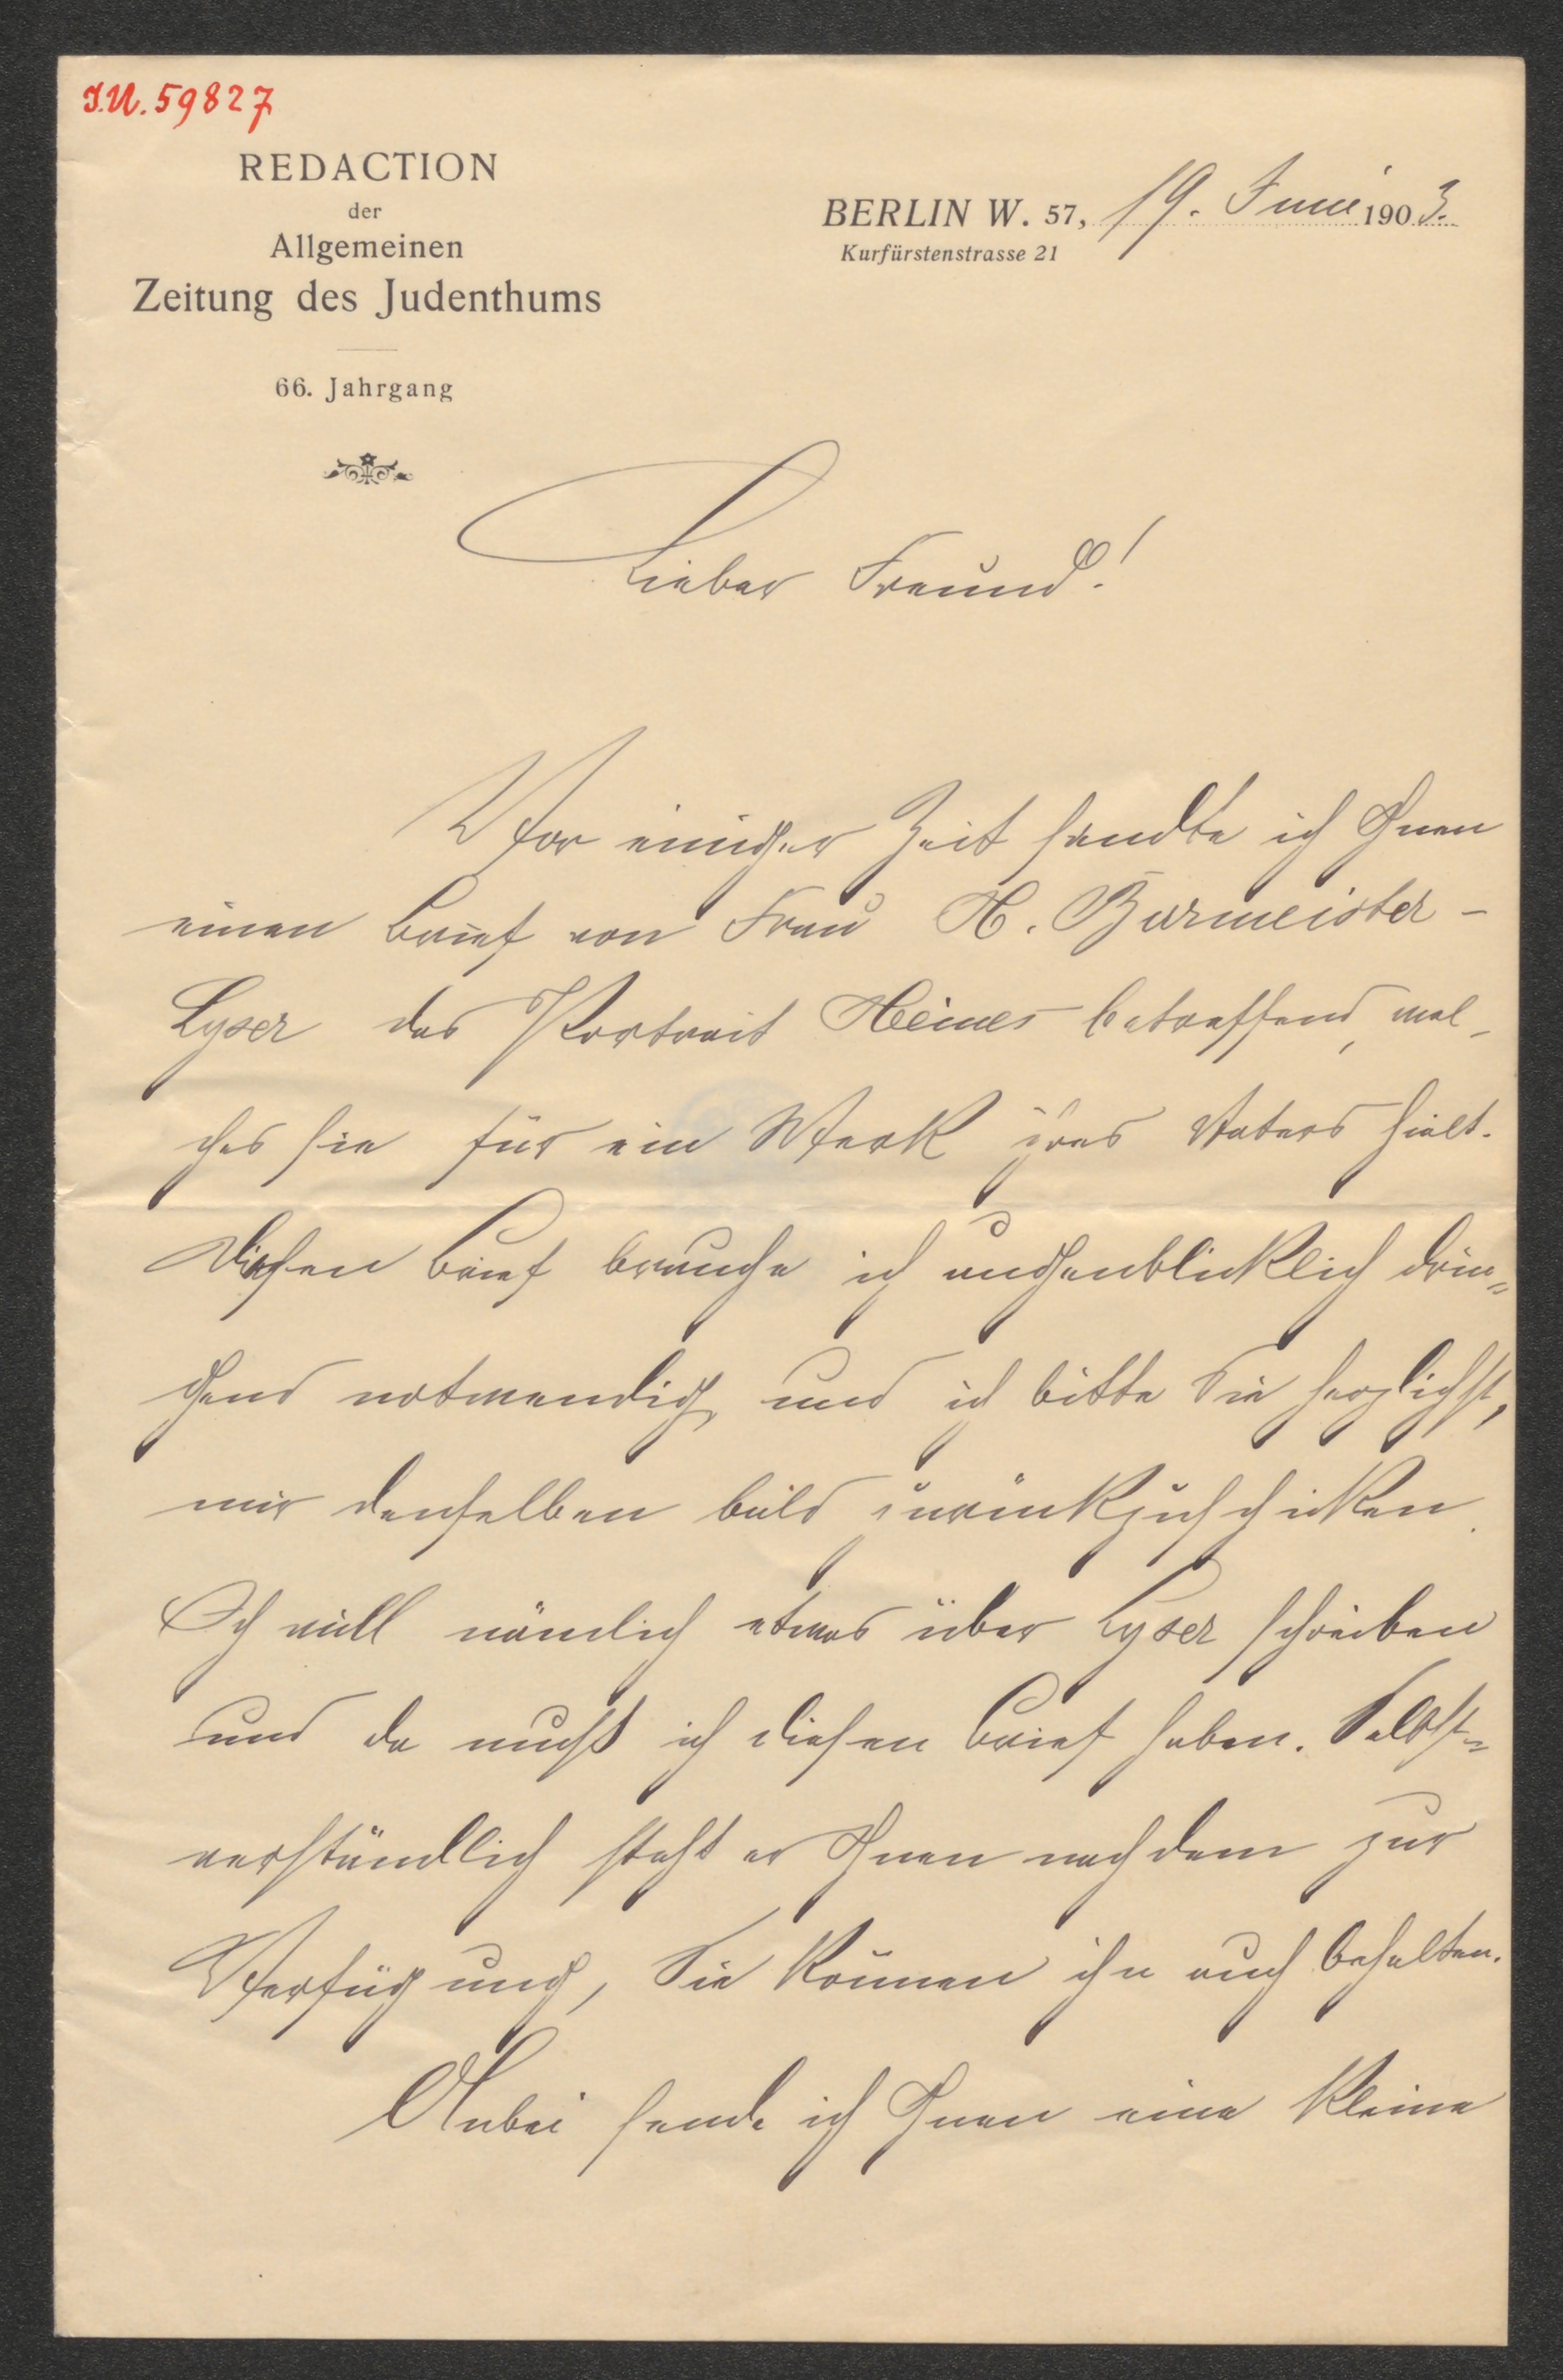 I.N. 59827
REDACTION
der
Allgemeinen
Zeitung des Judenthums
66. Jahrgang
BERLIN W. 57, 19. Juni 1903.
Kurfürstenstrasse 21
Lieber Freund!
Vor einiger Zeit sandte ich Ihnen
einen Brief von Frau H. Burmeister-
Lyser das Portrait Heines betreffend, wel-
ches sie für ein Werk ihres Vaters hielt.
Diesen Brief brauche ich augenblicklich drin=
gend notwendig und ich bitte Sie herzlichst,
mir denselben bald zurückzuschicken.
Ich will nämlich etwas über Lyser schreiben
und da muß ich diesen Brief haben. Selbst=
verständlich steht er Ihnen nachdem zur
Verfügung, Sie können ihn auch behalten.
Anbei sende ich Ihnen eine kleine